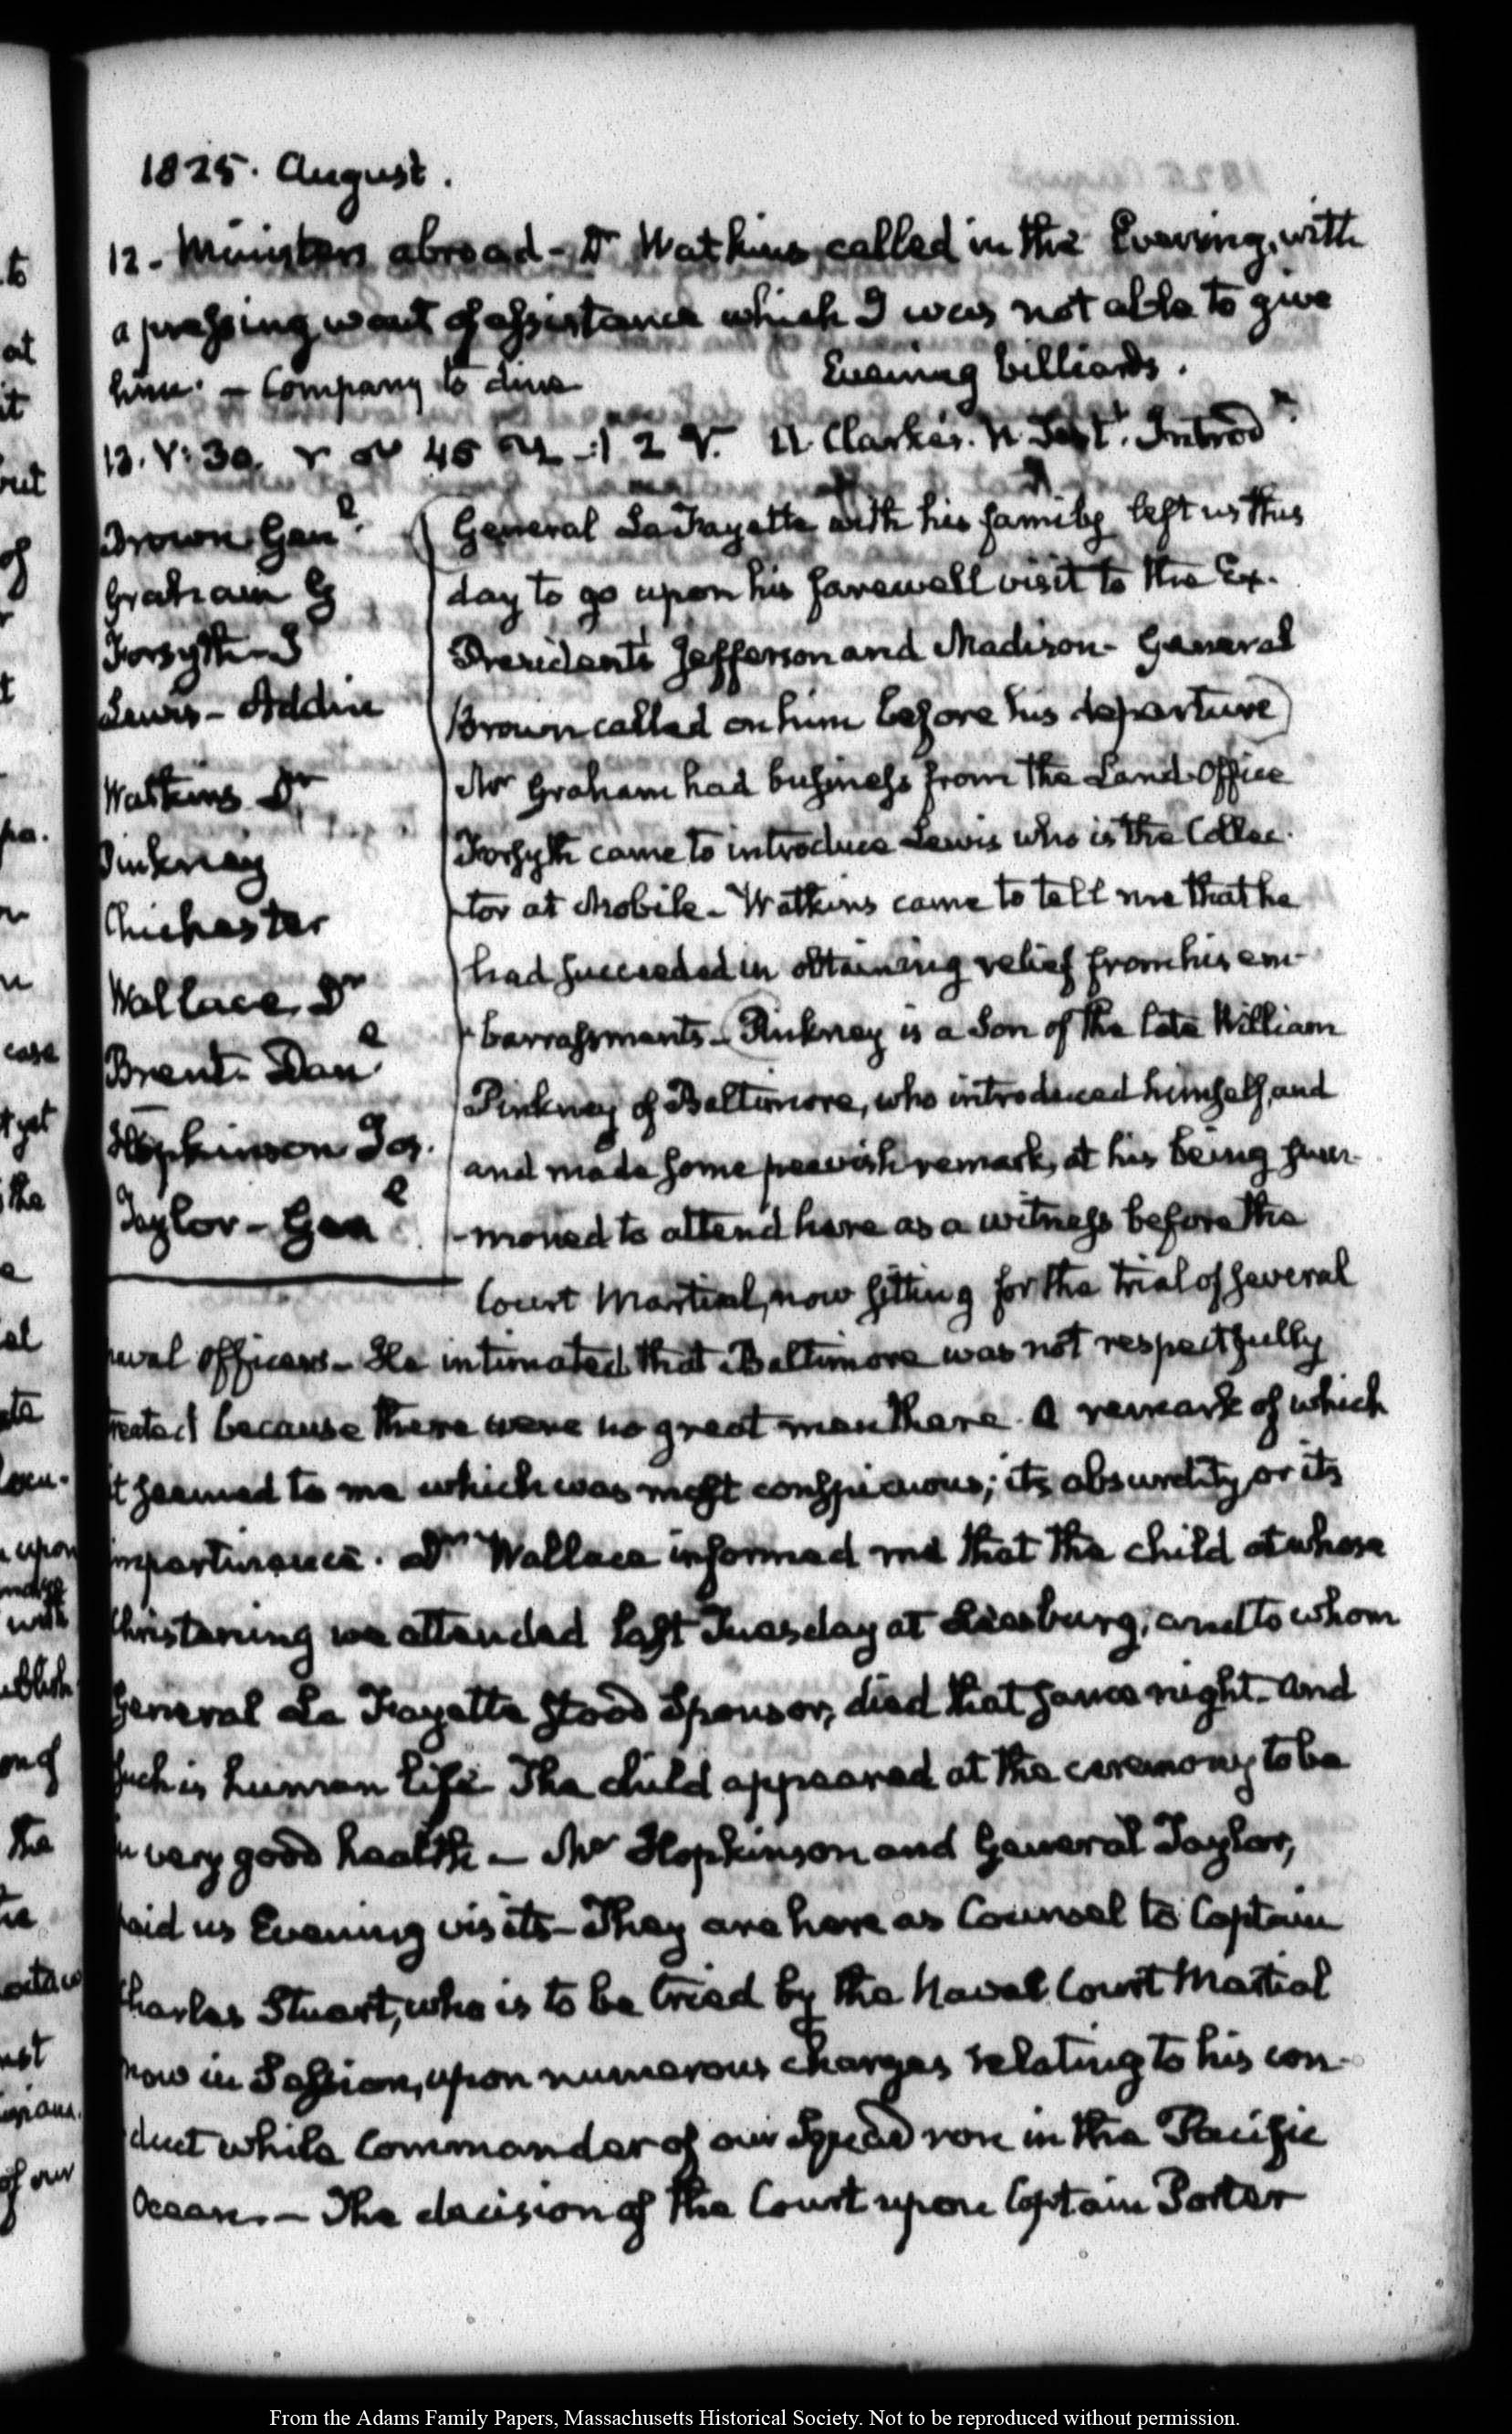 1825. August.
12. Ministers abroad - Dr Watkins called in the Evening, with
a pressing want of assistance which I was not able to give
him. - Company to dine Evening billiards.
13. V: 30. 45 12 V. II. Clarke's. N. Test. Introdn.
Brown Genl.
Graham G
Forsyth - J
Lewis - Addin
Watkins Dr
Pinkney
Chichester
Wallace Dr
Brent. Danl
Hopkinson Jos.
Taylor - Genl.
General La Fayette with his family left us this
day to go upon his farewell visit to the Ex.
Presidents Jefferson and Madison - General
Brown called on him before his departure)
Mr Graham had business from the Land Office
Forsyth came to introduce Lewis who is the Collec-
tor at Mobile - Watkins came to tell me that he
had succeeded in obtaining relief from his em-
-barrassments - Pinkney is a Son of the late William
Pinkney of Baltimore, who introduced himself, and
and made some peevish remark, at his being sum-
-moned to attend here as a witness before the
Court Martial, now sitting for the trial of several
naval officers - He intimated that Baltimore was not respectfully
treated because there were no great men there. A remark of which
it seemed to me which was most conspicuous; its absurdity, or its
impertinence. Dr Wallace informed me that the child at whose
Christening we attended last Tuesday at Leesburg, and to whom
General La Fayette stood Sponsor, died that same night. And
such is human life. The child appeared at the ceremony to be
in very good health - Mr Hopkinson and General Taylor,
paid us Evening visits - They are here as Counsel to Captain
Charles Stuart, who is to be tried by the Naval Court Martial
now in Session, upon numerous charges relating to his con-
duct while Commander of our Squadron in the Pacific
Ocean. - The decision of the Court upon Captain Porter
From the Adams Family Papers, Massachusetts Historical Society. Not to be reproduced without permission.